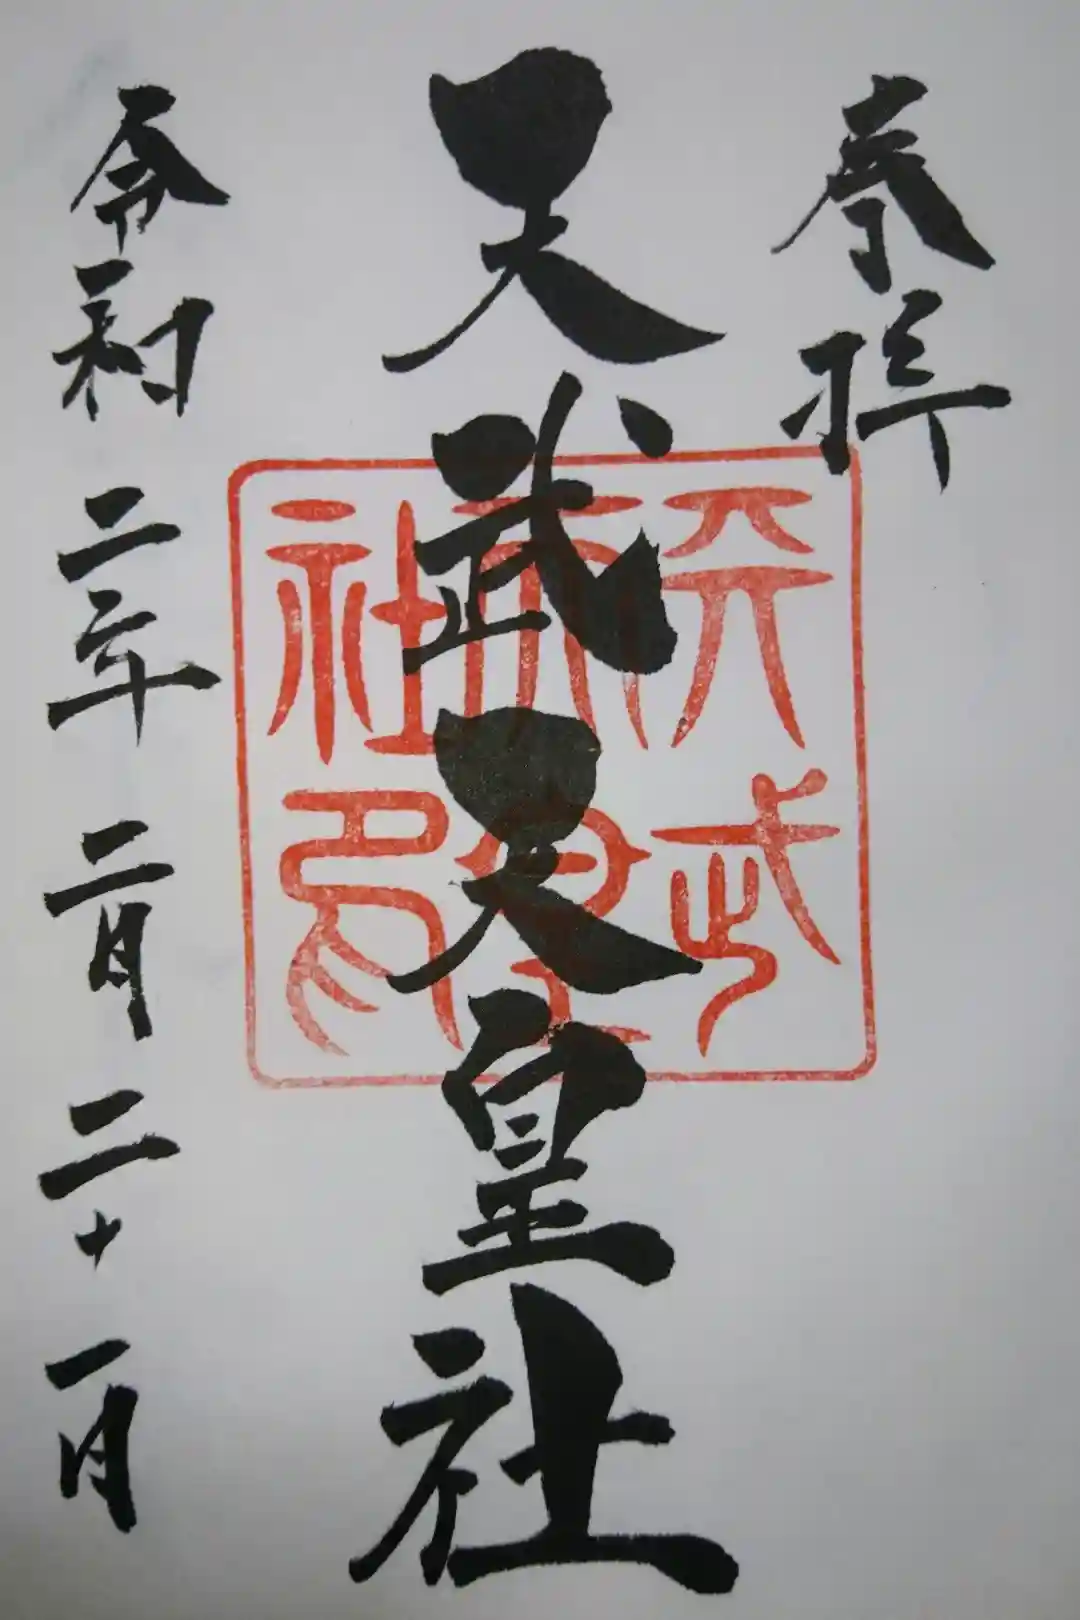 奉拝
天武天皇社
天武
天皇
社印
令和二年二月二十一日